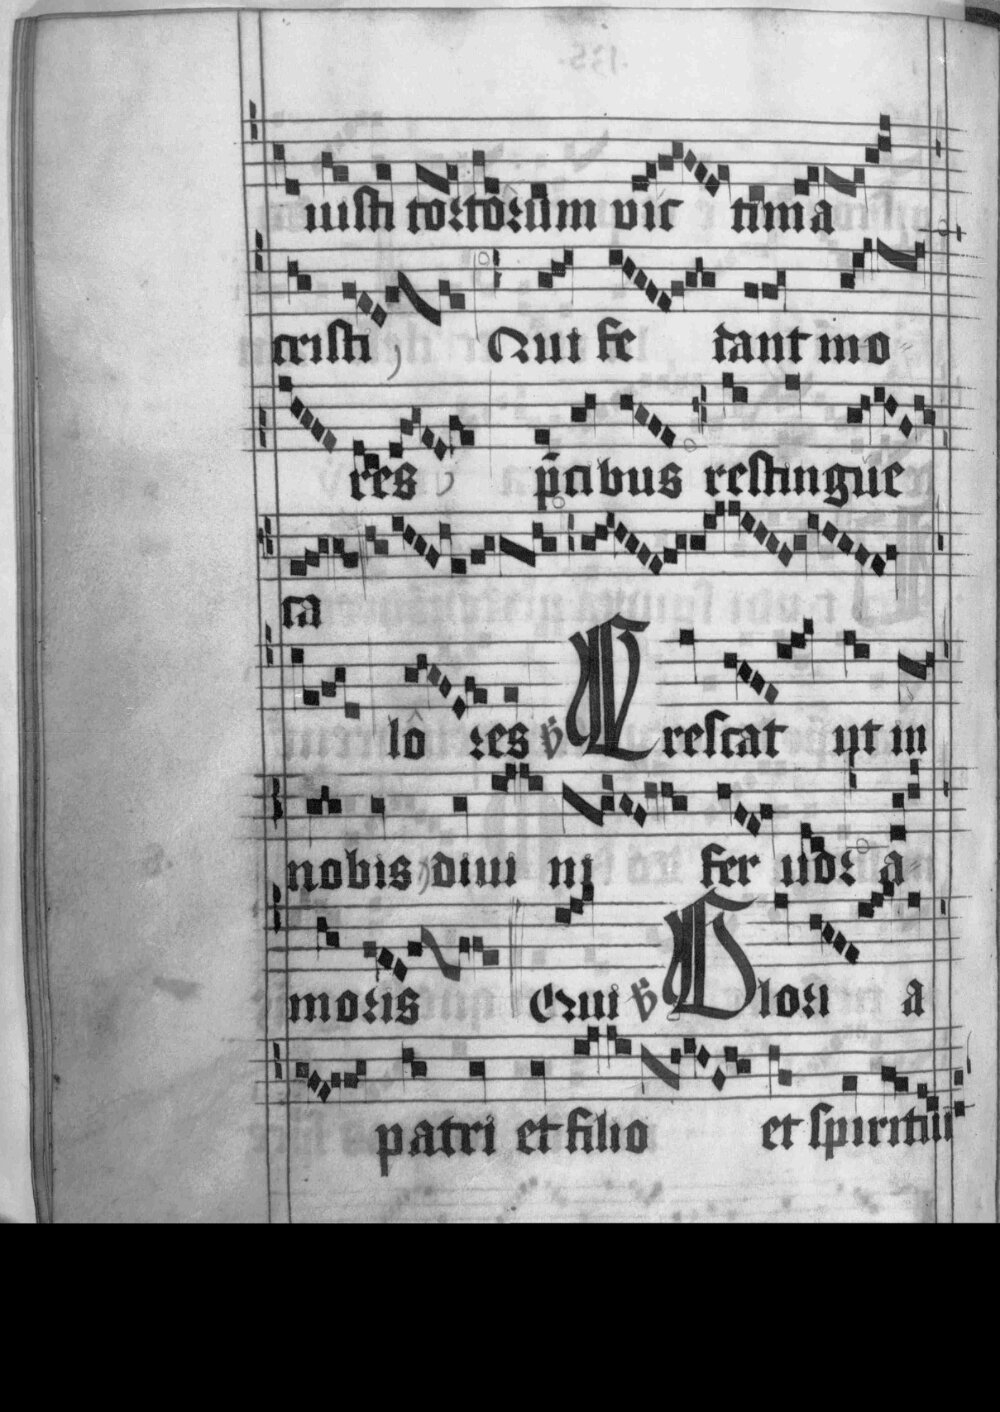 iusti tortorum vic tima
cristi Qui fe dant mo
res p̄cibus restingue
ca
lo res v̄ Crescat ut in
nobis diui ni fer uor a
moris Qui v̄ Glori a
patri et filio et spiritui